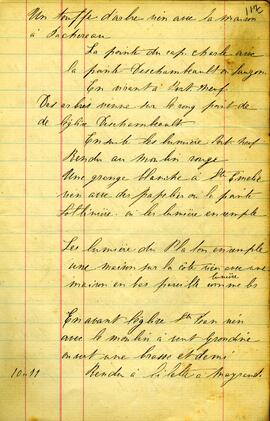 112
Un touffe d'arbre vien avec la maison
à Lachereau
La pointe du cap charle avec
la pointe Deschambault
En vivant à Port neuf
Des arbres vienne sur le rong point de
de léglise Deschambault
Ensuite les lumière Port neuf
Rendu au moulin rouge
Une grange blanche à Ste Emelie
vien avec des papelier ou la pointe
Lotbinière ou les lumière ensemple
Les lumière du Platon ensemple
une maison sur la côte vien avec une
lumière
maison en bas pareille comme les
En avant léglise Ste Jean vien
avec le moulin à vent Grondine
ouvert une brasse et demi
10 11 Rendu à l'ilette a Mayrand